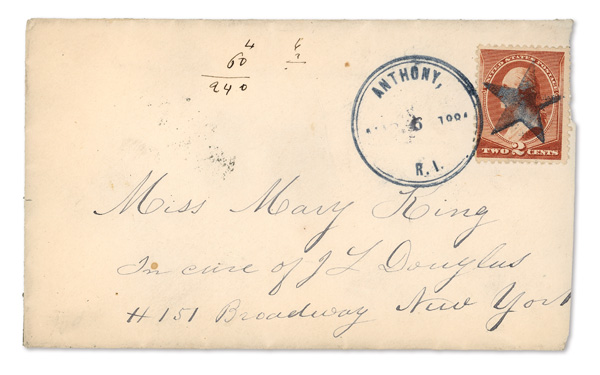 4
60
240
ANTHONY,
6
R. I.
UNITED STATES POSTAGE
TWO 2 CENTS
Miss Mary King
In care of J L Douglus
# 151 Broadway New York